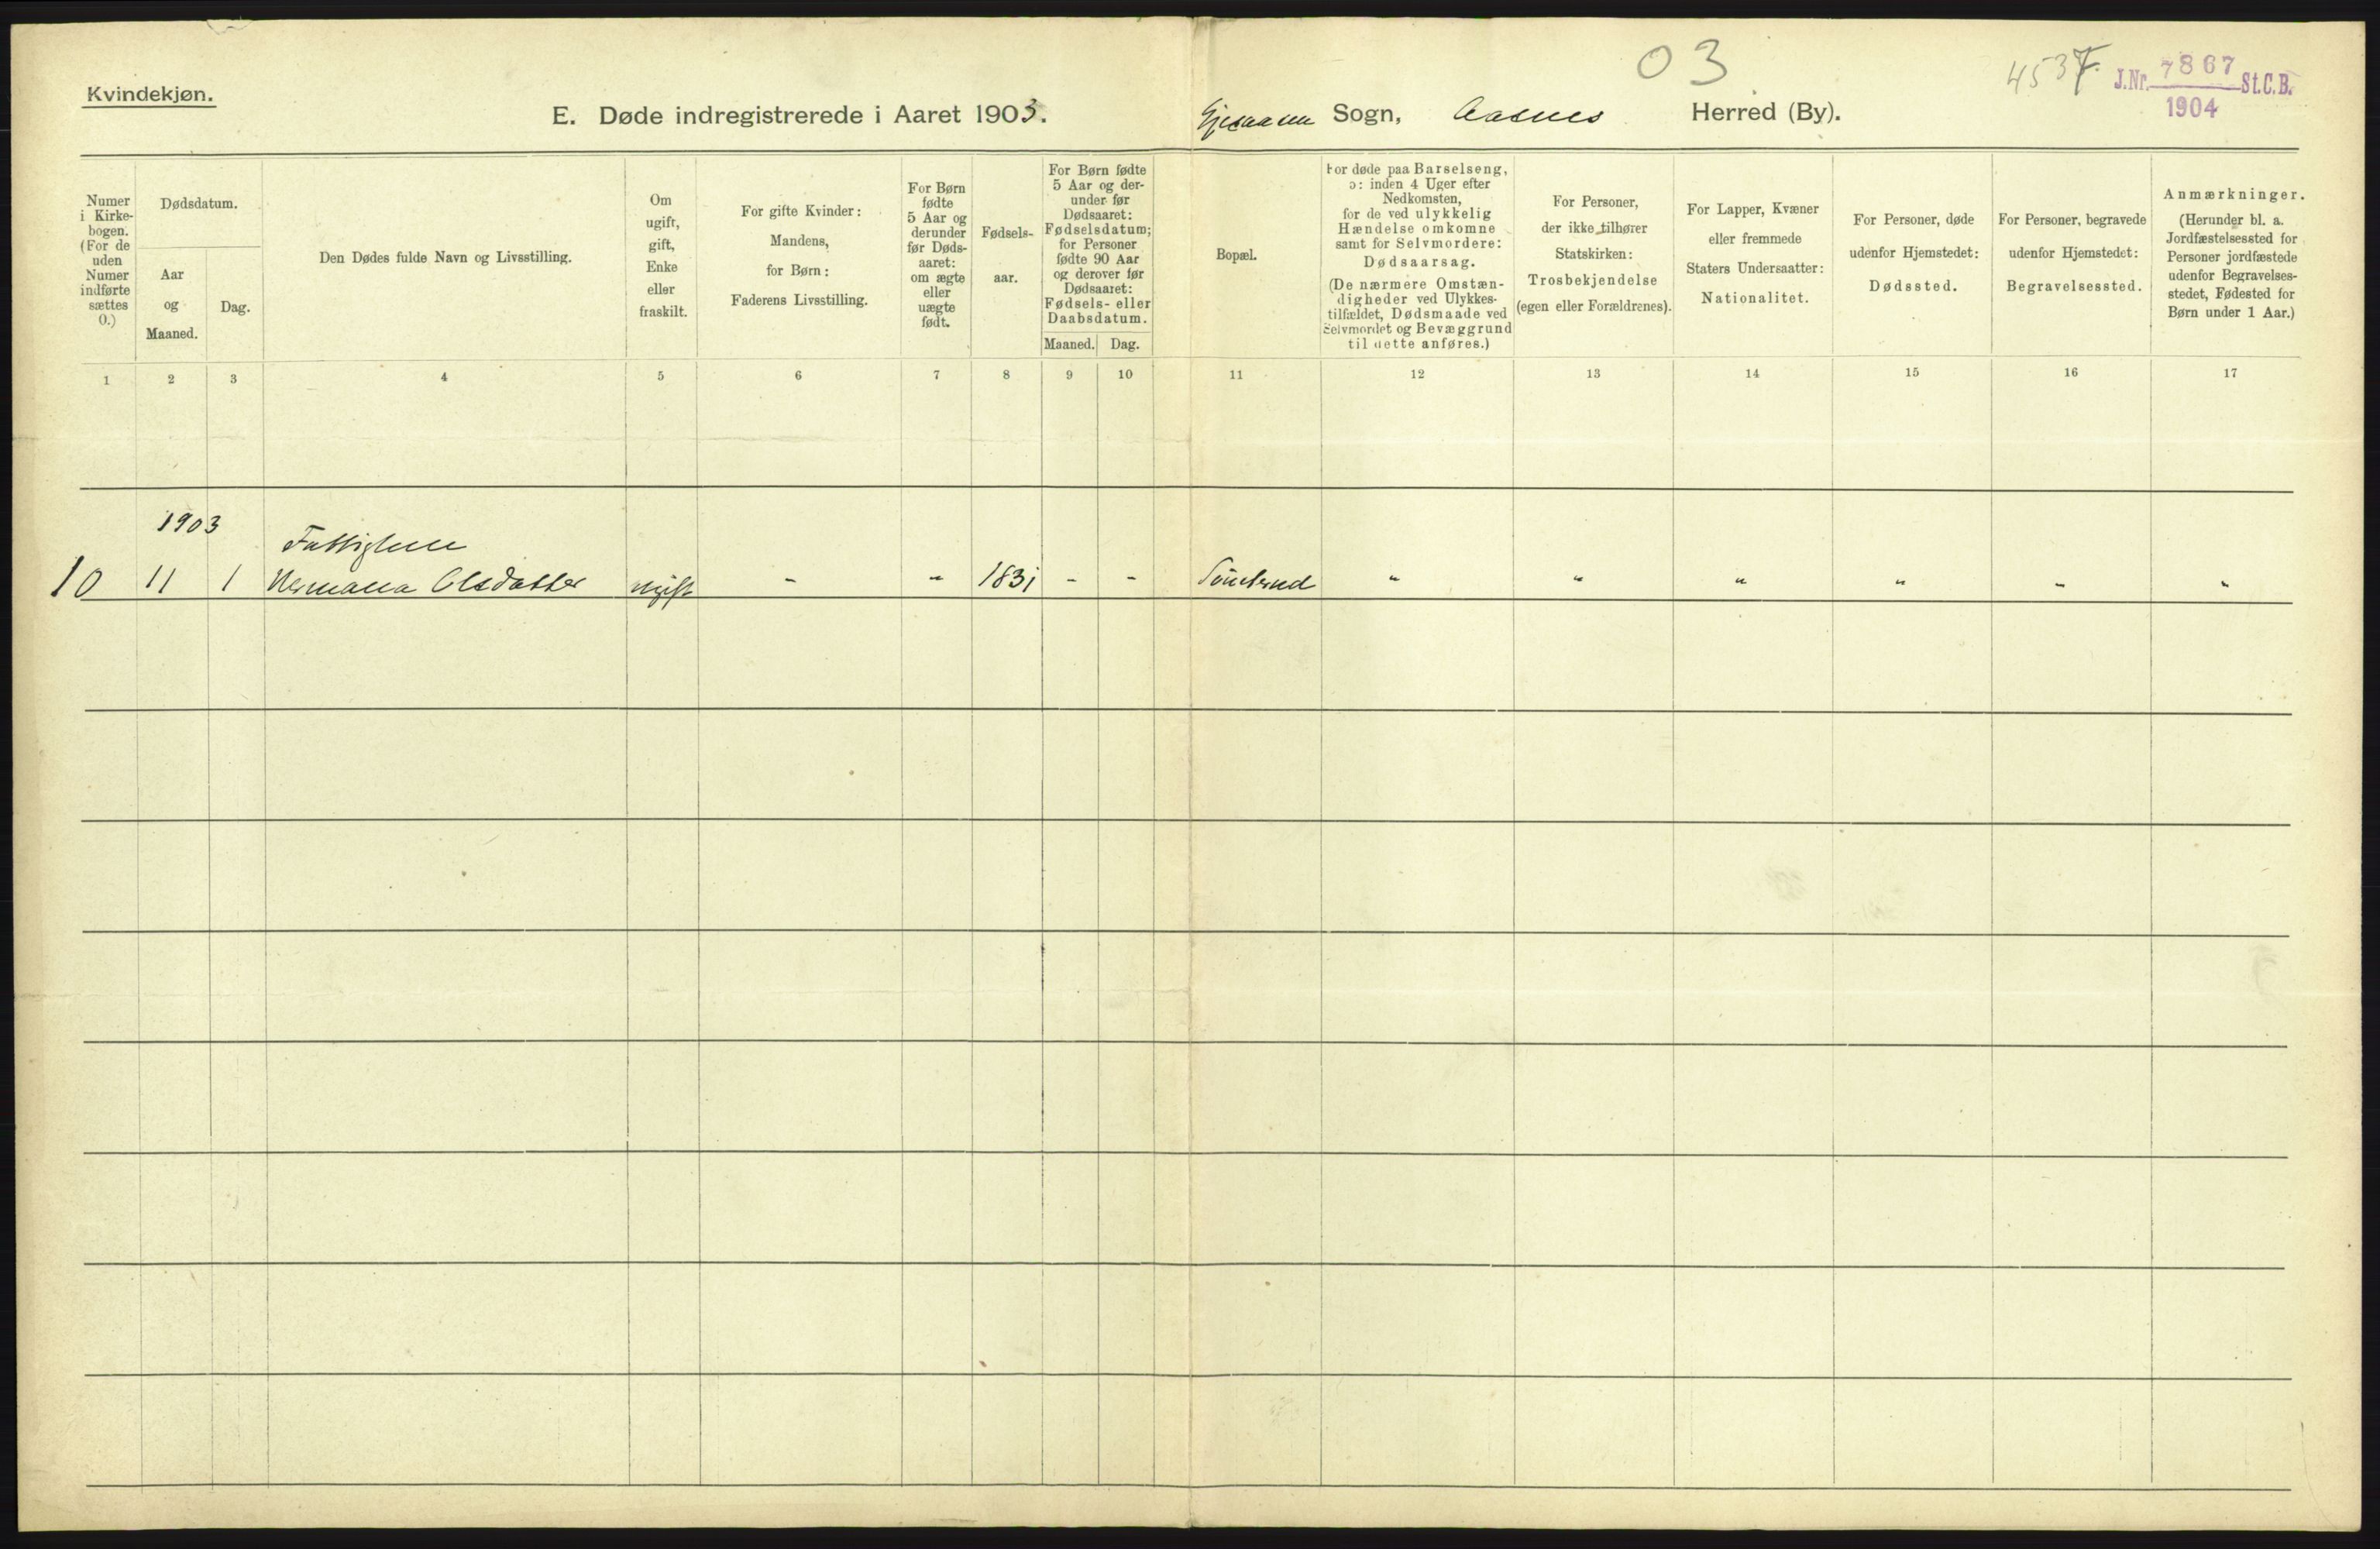 Kvindekjøn.
E. Døde indregistrerede i Aaret 1903. Sogn, Aasnes Herred (By).
03
4537
J.Nr. 7867 St.C.B.
1904
Numer i Kirkebogen. (For de uden Numer indførte sættes 0.)
Dødsdatum.
Aar og Maaned.
Dag.
Den Dødes fulde Navn og Livsstilling.
Om ugift, gift, Enke eller fraskilt.
For gifte Kvinder: Mandens, for Børn: Faderens Livsstilling.
For Børn fødte 5 Aar og derunder før Dødsaaret: om ægte eller uægte født.
Fødselsaar.
For Børn fødte 5 Aar og derunder før Dødsaaret: Fødselsdatum; for Personer fødte 90 Aar og derover før Dødsaaret: Fødsels- eller Daabsdatum.
Maaned. Dag.
Bopæl.
For døde paa Barselseng, ɔ: inden 4 Uger efter Nedkomsten, for de ved ulykkelig Hændelse omkomne samt for Selvmordere: Dødsaarsag. (De nærmere Omstændigheder ved Ulykkestilfældet, Dødsmaade ved Selvmordet og Bevæggrund til dette anføres.)
For Personer, der ikke tilhører Statskirken: Trosbekjendelse (egen eller Forældrenes).
For Lapper, Kvæner eller fremmede Staters Undersaatter: Nationalitet.
For Personer, døde udenfor Hjemstedet: Dødssted.
For Personer, begravede udenfor Hjemstedet: Begravelsessted.
Anmærkninger. (Herunder bl. a. Jordfæstelsessted for Personer jordfæstede udenfor Begravelsesstedet, Fødested for Børn under 1 Aar.)
1 2 3 4 5 6 7 8 9 10 11 12 13 14 15 16 17
1903
10 11 1 Olsdatter ugift - " 1831 - - " " " " " "